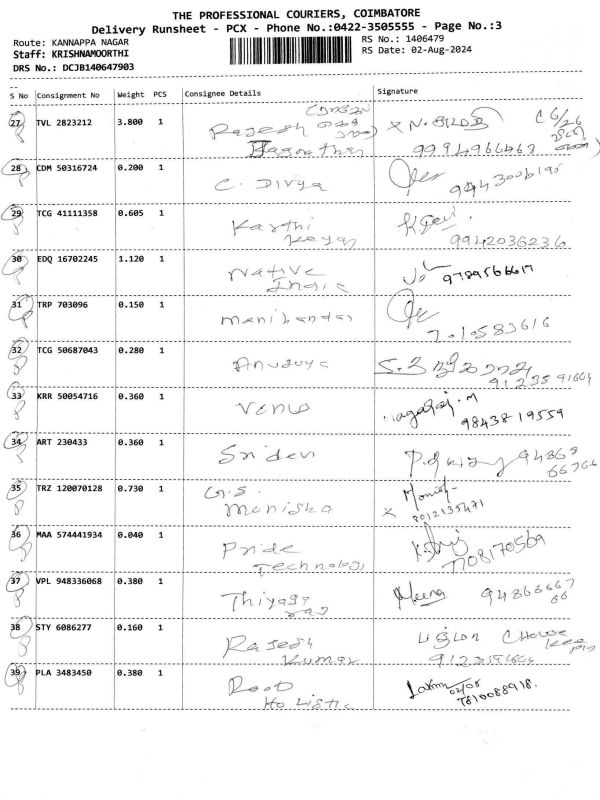 THE PROFESSIONAL COURIERS, COIMBATORE
Delivery Runsheet - PCX - Phone No.:0422-3505555 - Page No.:3
Route: KANNAPPA NAGAR
RS No.: 1406479
Staff: KRISHNAMOORTHI
RS Date: 02-Aug-2024
DRS No.: DCJB140647903
S No Consignment No Weight PCS Consignee Details Signature
27 TVL 2823212 3.800 1 Rajesh
9994966463
28 CDM 50316724 0.200 1 C. Divya
29 TCG 41111358 0.605 1 Karthi K.Devi
Keyan 9942036236
30 EDQ 16702245 1.120 1 Native 9789566617
India
31 TRP 703096 0.150 1 Manikandan
7010583616
32 TCG 50687043 0.280 1 Anusuya
9123591604
33 KRR 50054716 0.360 1 Venu Nagaraj.M
98438 19559
34 ART 230433 0.360 1 Sridevi 94863
66766
35 TRZ 120070128 0.730 1 G.S. Monish
Monisha 8012135471
36 MAA 574441934 0.040 1 Pride
Technology 7708170569
37 VPL 948336068 0.380 1 Thiyaga Meena 94863667
raj 66
38 STY 6086277 0.160 1 Rajesh
Kumar 9123591604
39 PLA 3483450 0.380 1 Root Laxmi 02/08
Holistic 7810088918.